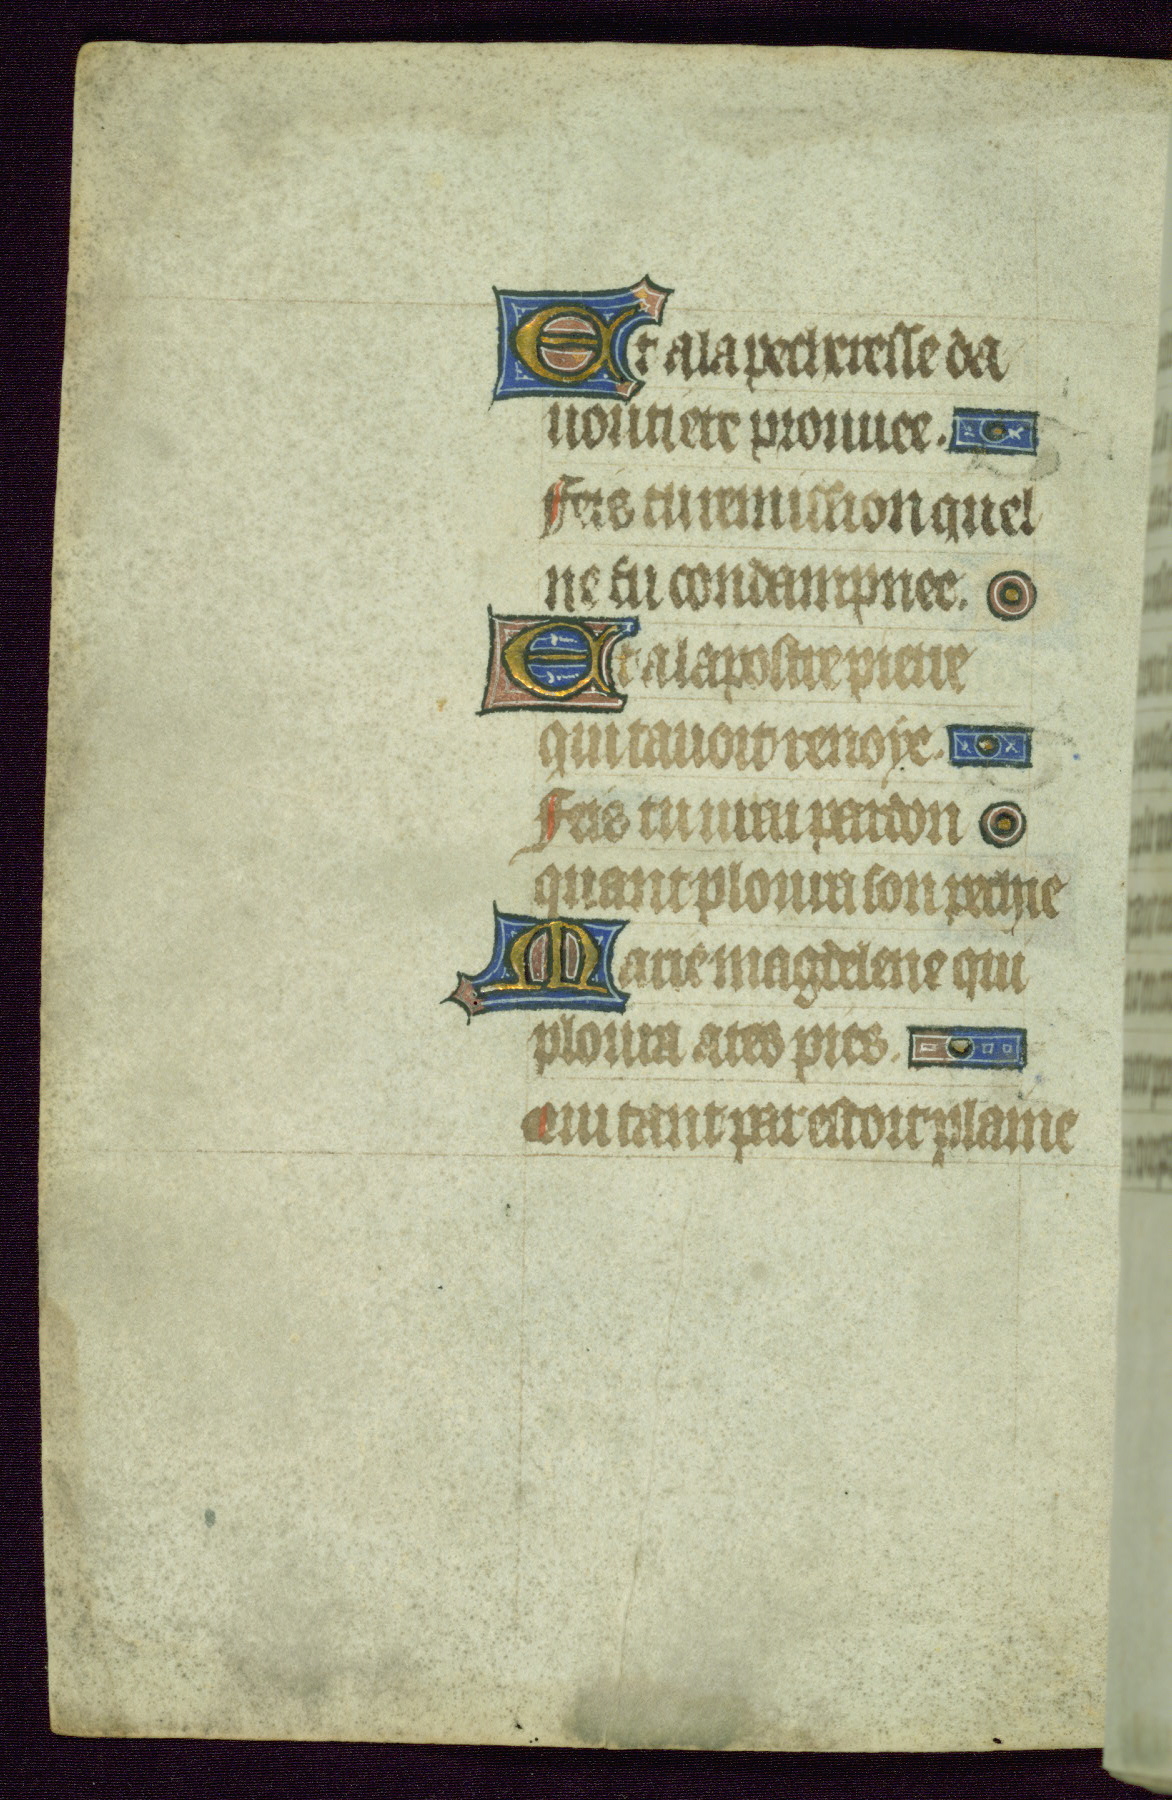 Et a la pecheresse da
uoutiere prouuee.
Feis tu remission quel
ne fu condampnee.
Et a lapostre pierre
qui tauoit renoye.
Feis tu urai pardon
quant ploura son pechie
Marie magdelene qui
ploura a tes pies.
Qui tant par estoit plaine